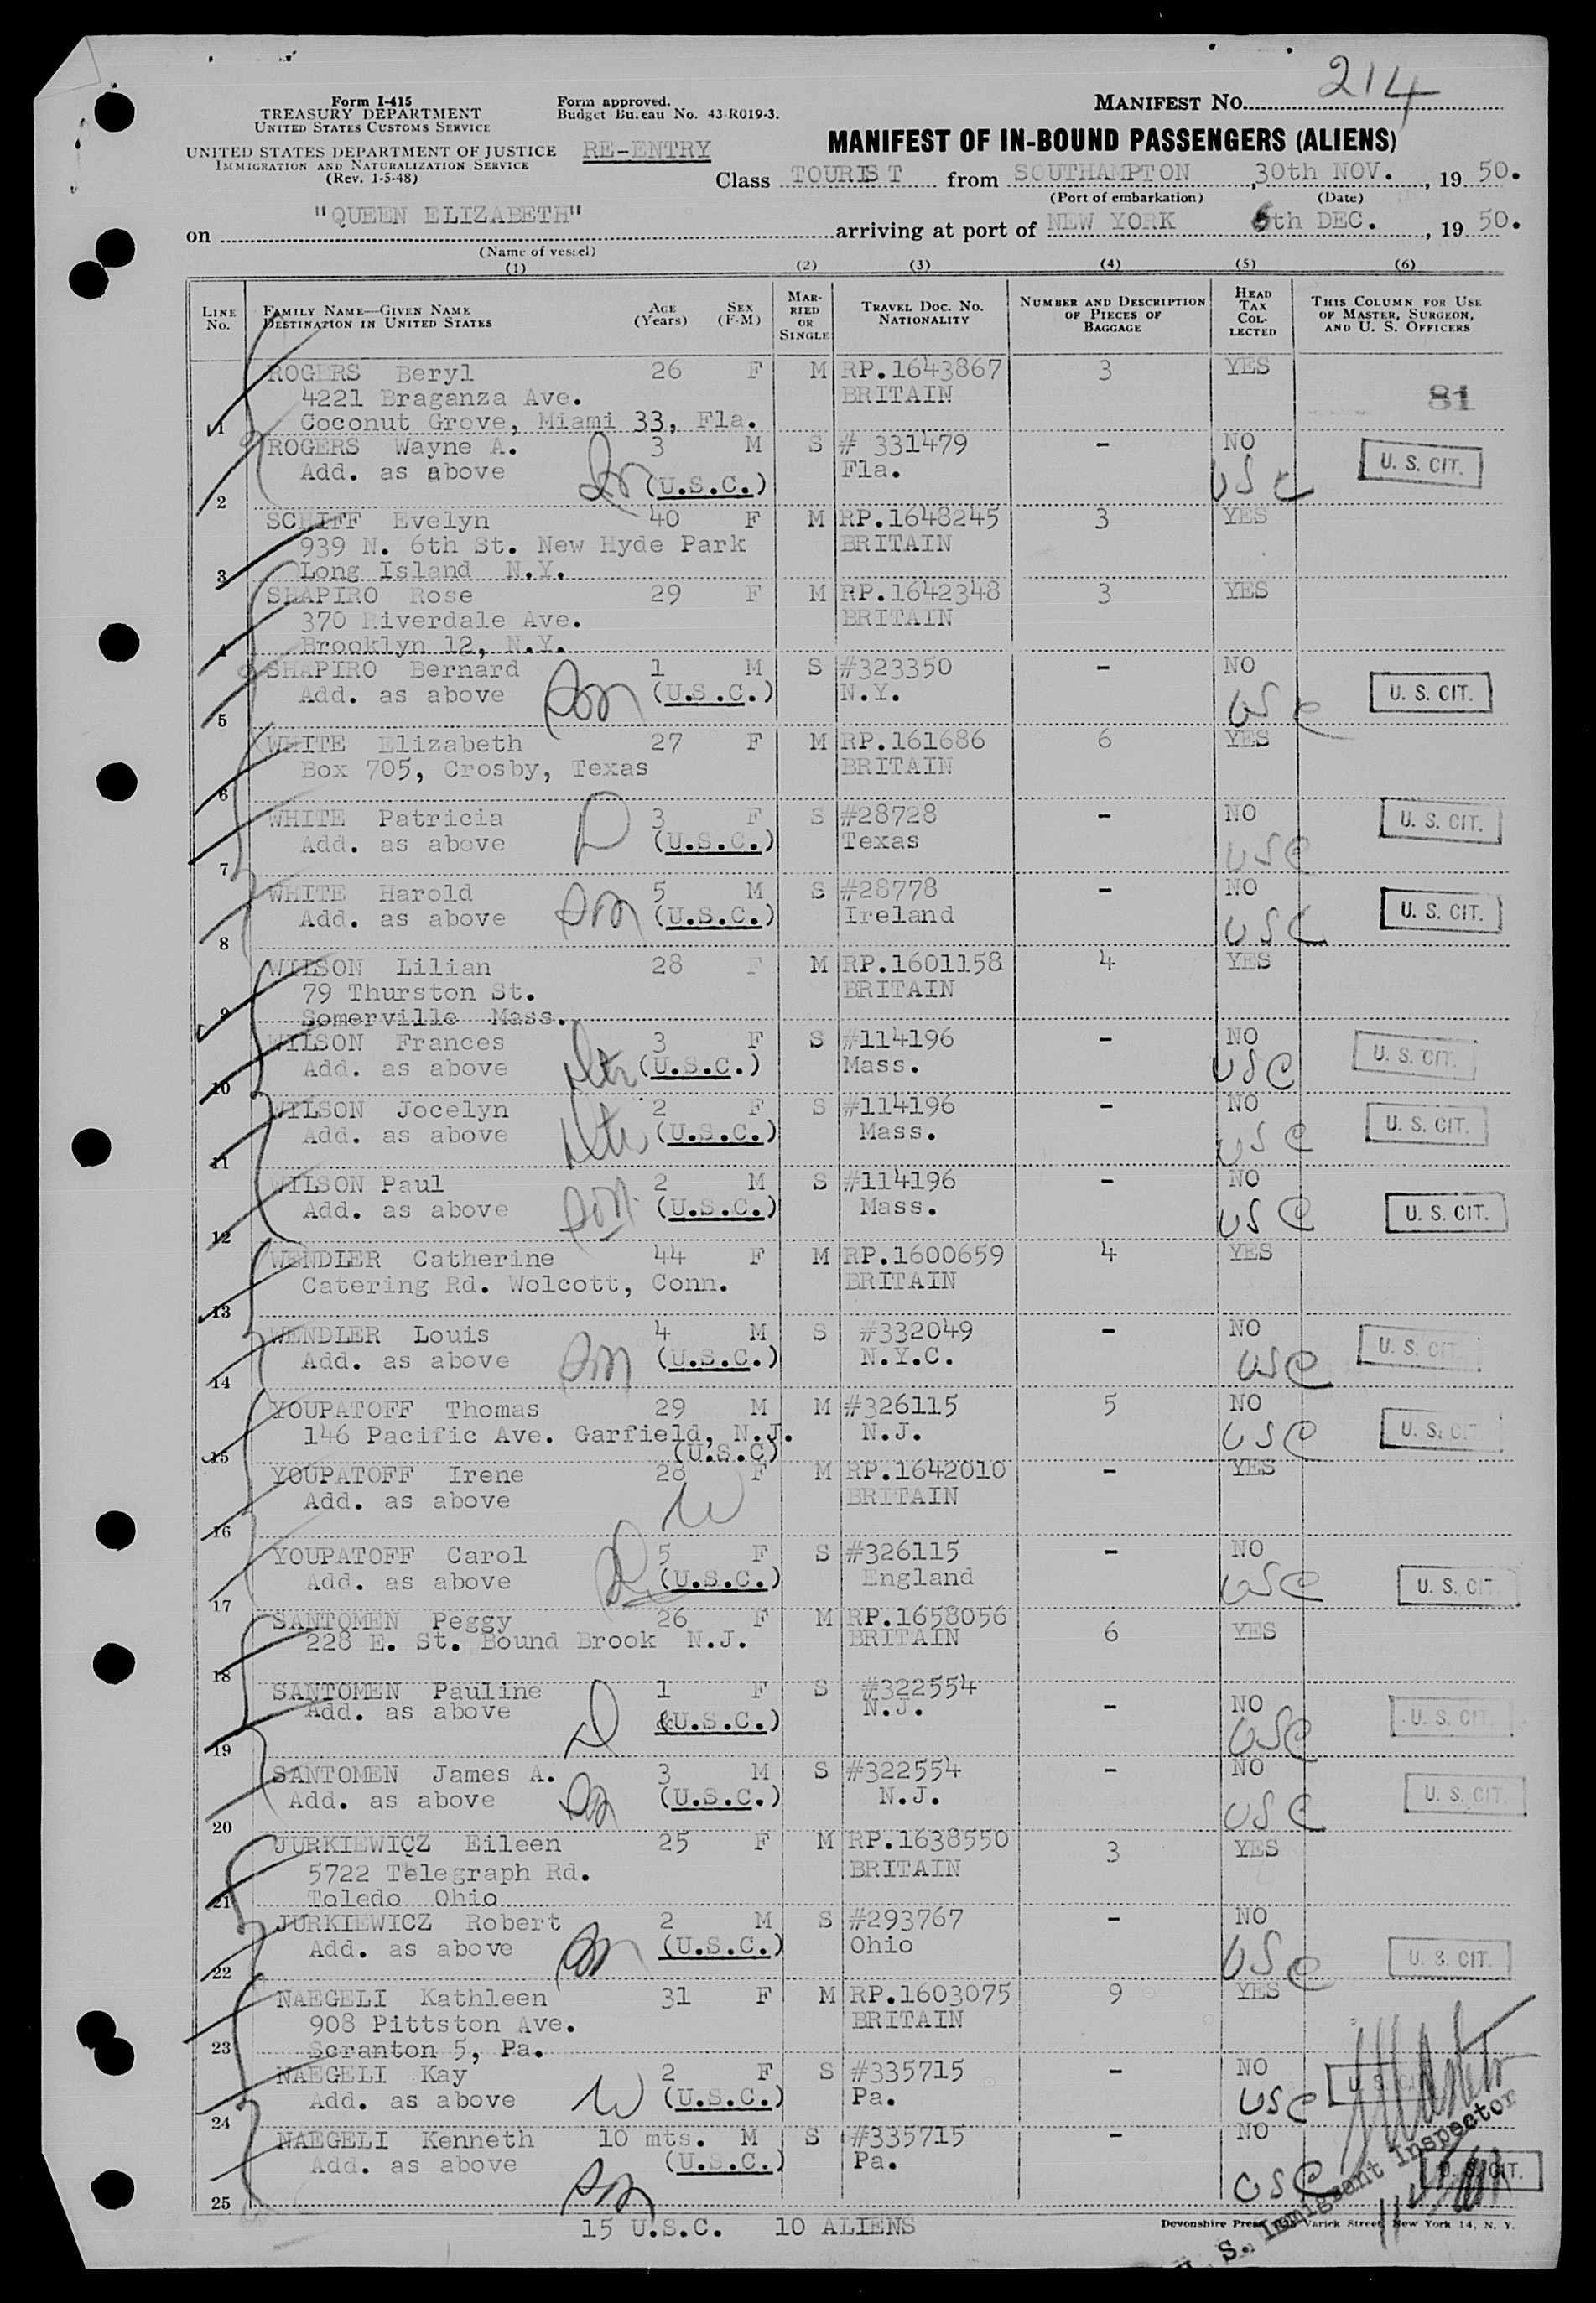 214
Form I-415
TREASURY DEPARTMENT
UNITED STATES CUSTOMS SERVICE
Form approved.
Budget Bureau No. 43-R019-3.
MANIFEST No.
UNITED STATES DEPARTMENT OF JUSTICE
IMMIGRATION AND NATURALIZATION SERVICE
(Rev. 1-5-48)
RE-ENTRY
MANIFEST OF IN-BOUND PASSENGERS (ALIENS)
Class TOURIST from SOUTHAMPTON, 30th NOV., 19 50.
(Port of embarkation) (Date)
on "QUEEN ELIZABETH" arriving at port of NEW YORK 6th DEC., 19 50.
(Name of vessel)
(1) (2) (3) (4) (5) (6)
LINE No. FAMILY NAME—GIVEN NAME DESTINATION IN UNITED STATES AGE (Years) SEX (F-M) MARRIED OR SINGLE TRAVEL DOC. No. NATIONALITY NUMBER AND DESCRIPTION OF PIECES OF BAGGAGE HEAD TAX COLLECTED THIS COLUMN FOR USE OF MASTER, SURGEON, AND U. S. OFFICERS
ROGERS Beryl 26 F M RP.1643867 3 YES
4221 Braganza Ave. BRITAIN 81
1 Coconut Grove, Miami 33, Fla.
ROGERS Wayne A. 3 M S # 331479 - NO
Add. as above Fla. U. S. CIT.
2 (U.S.C.) USC
SCHIFF Evelyn 40 F M RP.1648245 3 YES
939 N. 6th St. New Hyde Park BRITAIN
3 Long Island N.Y.
SHAPIRO Rose 29 F M RP.1642348 3 YES
370 Riverdale Ave. BRITAIN
4 Brooklyn 12, N.Y.
SHAPIRO Bernard 1 M S #323350 - NO
Add. as above Son (U.S.C.) N.Y. USC U. S. CIT.
5
WHITE Elizabeth 27 F M RP.161686 6 YES
Box 705, Crosby, Texas BRITAIN
6
WHITE Patricia 3 F S #28728 - NO
Add. as above D (U.S.C.) Texas USC U. S. CIT.
7
WHITE Harold 5 M S #28778 - NO
Add. as above Son (U.S.C.) Ireland USC U. S. CIT.
8
WILSON Lilian 28 F M RP.1601158 4 YES
79 Thurston St. BRITAIN
9 Somerville Mass.
WILSON Frances 3 F S #114196 - NO
Add. as above Dtr (U.S.C.) Mass. USC U. S. CIT.
10
WILSON Jocelyn 2 F S #114196 - NO
Add. as above Dtr (U.S.C.) Mass. USC U. S. CIT.
11
WILSON Paul 2 M S #114196 - NO
Add. as above Son (U.S.C.) Mass. USC U. S. CIT.
12
WENDLER Catherine 44 F M RP.1600659 4 YES
Catering Rd. Wolcott, Conn. BRITAIN
13
WENDLER Louis 4 M S #332049 - NO
Add. as above Son (U.S.C.) N.Y.C. USC U. S. CIT.
14
YOUPATOFF Thomas 29 M M #326115 5 NO
146 Pacific Ave. Garfield, N.J. N.J. USC U. S. CIT.
15 (U.S.C)
YOUPATOFF Irene 28 F M RP.1642010 - YES
Add. as above W BRITAIN
16
YOUPATOFF Carol 5 F S #326115 - NO
Add. as above D (U.S.C.) England USC U. S. CIT.
17
SANTOMEN Peggy 26 F M RP.1658056 6 YES
228 E. St. Bound Brook N.J. BRITAIN
18
SANTOMEN Pauline 1 F S #322554 - NO
Add. as above D (U.S.C.) N.J. USC U. S. CIT.
19
SANTOMEN James A. 3 M S #322554 - NO
Add. as above Son (U.S.C.) N.J. USC U. S. CIT.
20
JURKIEWICZ Eileen 25 F M RP.1638550 3 YES
5722 Telegraph Rd. BRITAIN
21 Toledo Ohio
JURKIEWICZ Robert 2 M S #293767 - NO
Add. as above Son (U.S.C.) Ohio USC U. S. CIT.
22
NAEGELI Kathleen 31 F M RP.1603075 9 YES
908 Pittston Ave. BRITAIN
23 Scranton 5, Pa.
NAEGELI Kay 2 F S #335715 - NO
Add. as above W (U.S.C.) Pa. USC
24
NAEGELI Kenneth 10 mts. M S #335715 - NO
Add. as above Son (U.S.C.) Pa. USC U. S. CIT.
25
U. S. Immigrant Inspector
15 U.S.C. 10 ALIENS
Devonshire Press, Varick Street, New York 14, N. Y.